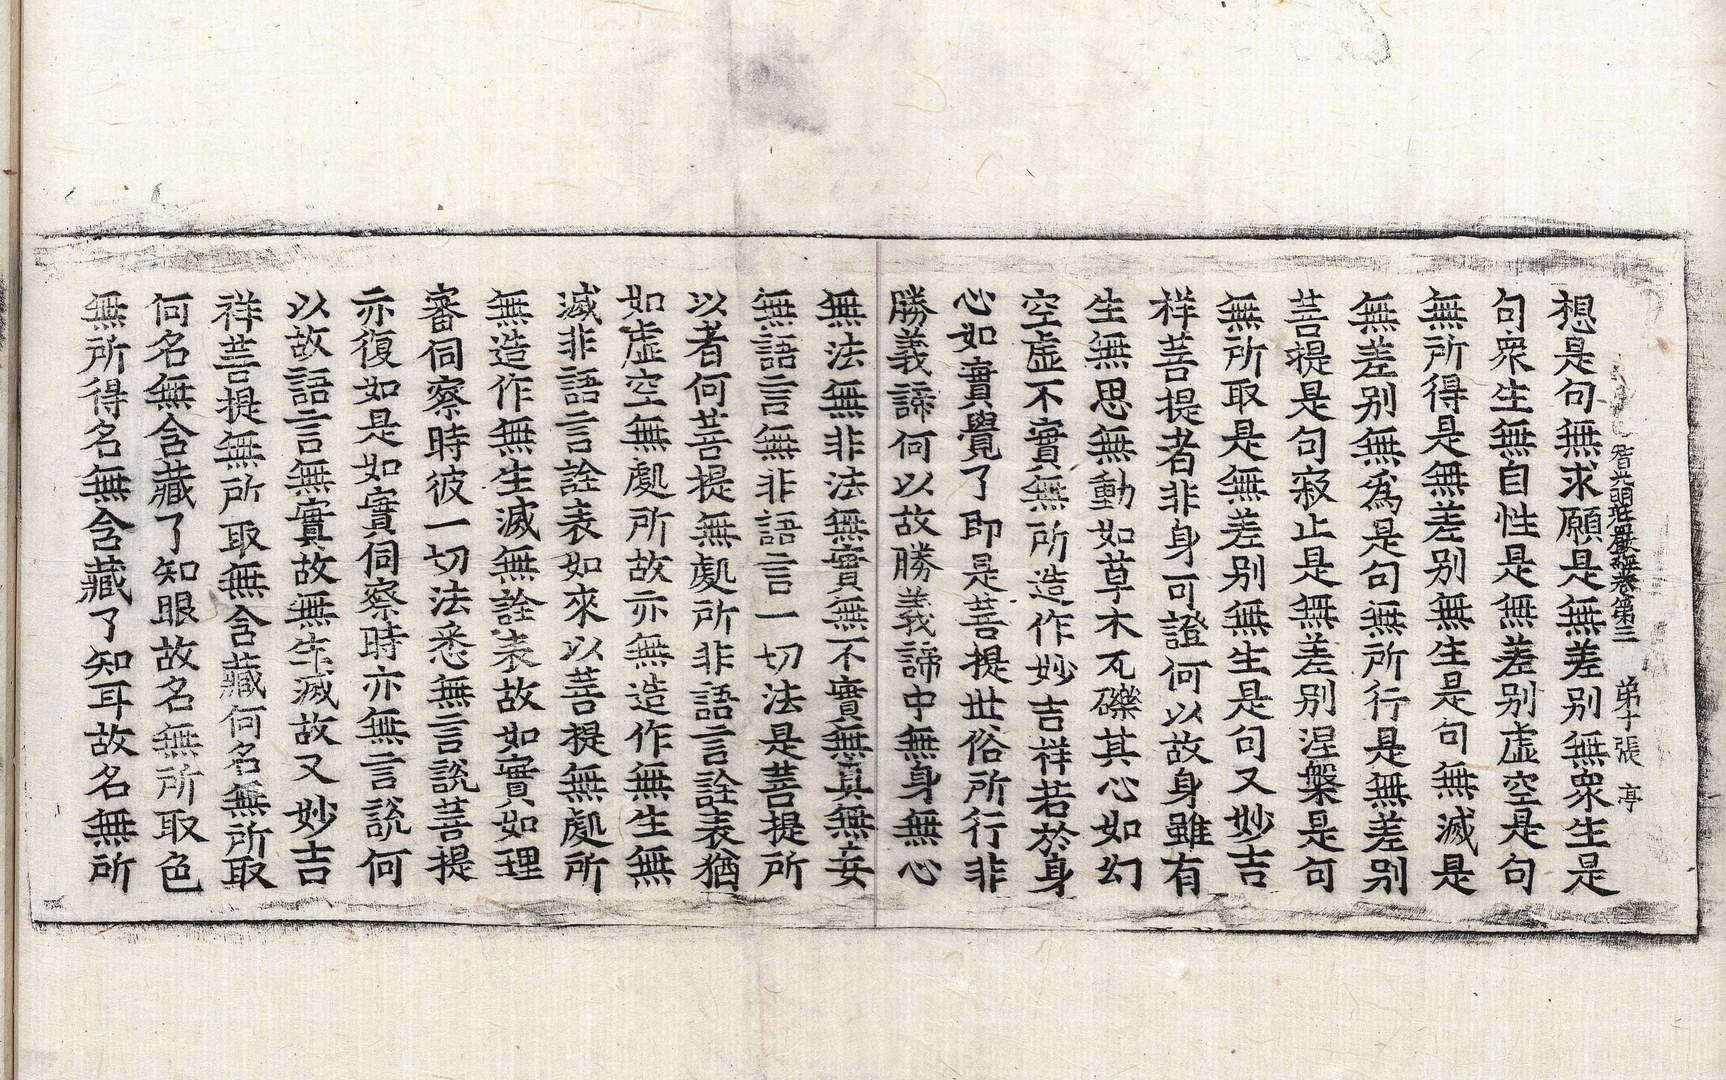 智光明莊嚴經卷第三　第十張　亭
想是句無求願是無差别無衆生是
句衆生無自性是無差别虛空是句
無所得是無差别無生是句無滅是
無差别無為是句無所行是無差别
菩提是句寂止是無差别涅槃是句
無所取是無差别無生是句又妙吉
祥菩提者非身可證何以故身雖有
生無思無動如草木瓦礫其心如幻
空虛不實無所造作妙吉祥若於身
心如實覺了即是菩提世俗所行非
勝義諦何以故勝義諦中無身無心
無法無非法無實無不實無真無妄
無語言無非語言一切法是菩提所
以者何菩提無處所非語言詮表猶
如虛空無處所故亦無造作無生無
滅非語言詮表如來以菩提無處所
無造作無生滅無詮表故如實如理
審伺察時彼一切法悉無言說菩提
亦復如是如實伺察時亦無言說何
以故語言無實故無生滅故又妙吉
祥菩提無所取無含藏何名無所取
何名無含藏了知眼故名無所取色
無所得名無含藏了知耳故名無所